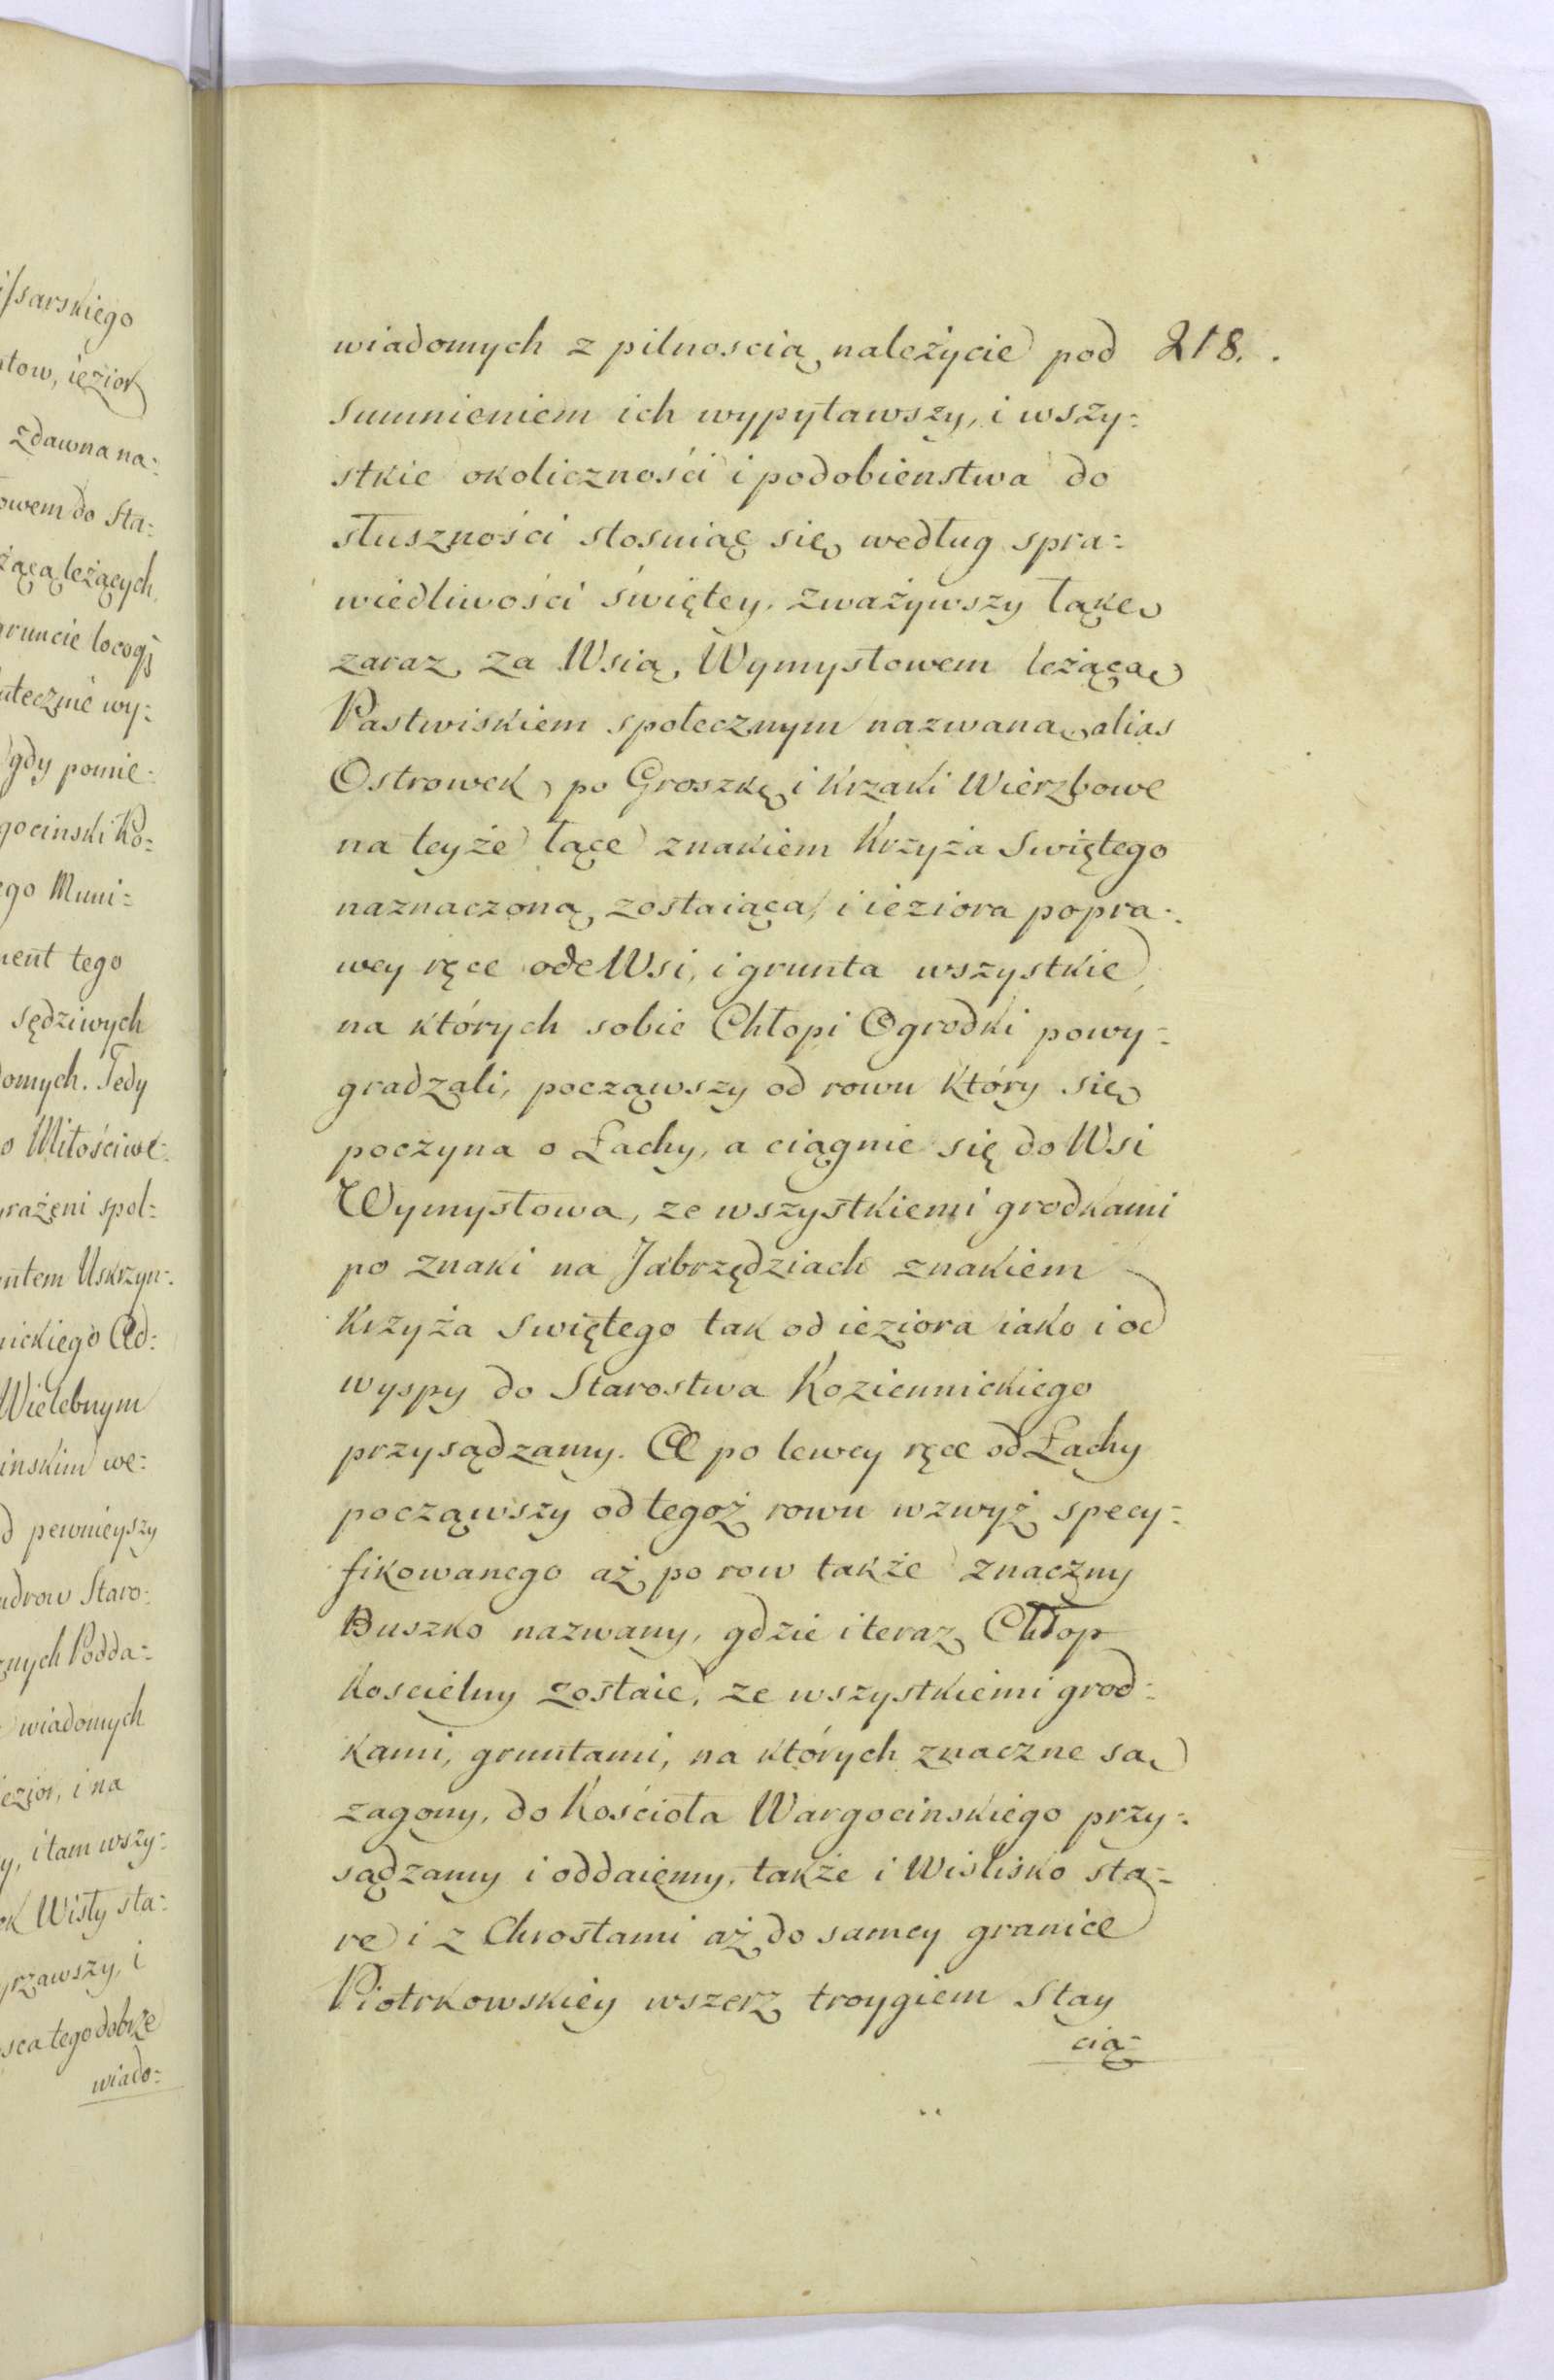 ifsarskiego
tow, iezior
zdawna na:
owem do Sta:
żącą leżących
gruncie locogj
utecznie wy:
gdy pomie:
gocinski Ko:
ego Muni:
ment tego
sędziwych
domych. Tedy
o Miłościwe:
rażeni spol:
entem Uskrzyn:
nickiego Ad:
Wielebnym
inskim we:
d pewnieyszy
udrow Staro:
znych Podda:
wiadomych
iezior, i na
y, i tam wszy:
ok Wisły sta:
yrzawszy, i
sca tego dobrze
wiado:
wiadomych z pilnoscią należycie pod 218.
Sumnieniem ich wypytawszy, i wszy:
stkie okoliczności i podobienstwa do
słuszności stosuiąc się według spra:
wiedliwości świętey, zważywszy łąkę
zaraz za Wsią Wymysłowem leżącą
Pastwiskiem społecznym nazwaną alias
Ostrowek, po Groszkę i krzaki Wierzbowe
na teyże łące znakiem Krzyża Swiętego
naznaczoną zostaiącą, i ieziora popra:
wey ręce ode Wsi, i grunta wszystkie
na których sobie Chłopi Ogrodki powy:
gradzali, począwszy od rowu który się
poczyna o Łachy, a ciągnie się do Wsi
Wymysłowa, ze wszystkiemi grodkami
po znaki na Jabrzędziach znakiem
Krzyża Swiętego tak od ieziora iako i od
wyspy do Starostwa Koziennickiego
przysądzamy. A po lewey ręce od Łachy
począwszy od tegoż rowu wzwyż specy:
fikowanego aż po row także znaczny
Buszko nazwany, gdzie i teraz Chłop
Koscielny zostaie, ze wszystkiemi grod:
kami, gruntami, na których znaczne są
zagony, do Kościoła Wargocinskiego przy:
sądzamy i oddaiemy, także i Wislisko sta:
re i z Chrostami aż do samey granice
Piotrkowskiey wszerz troygiem Stay
cią: